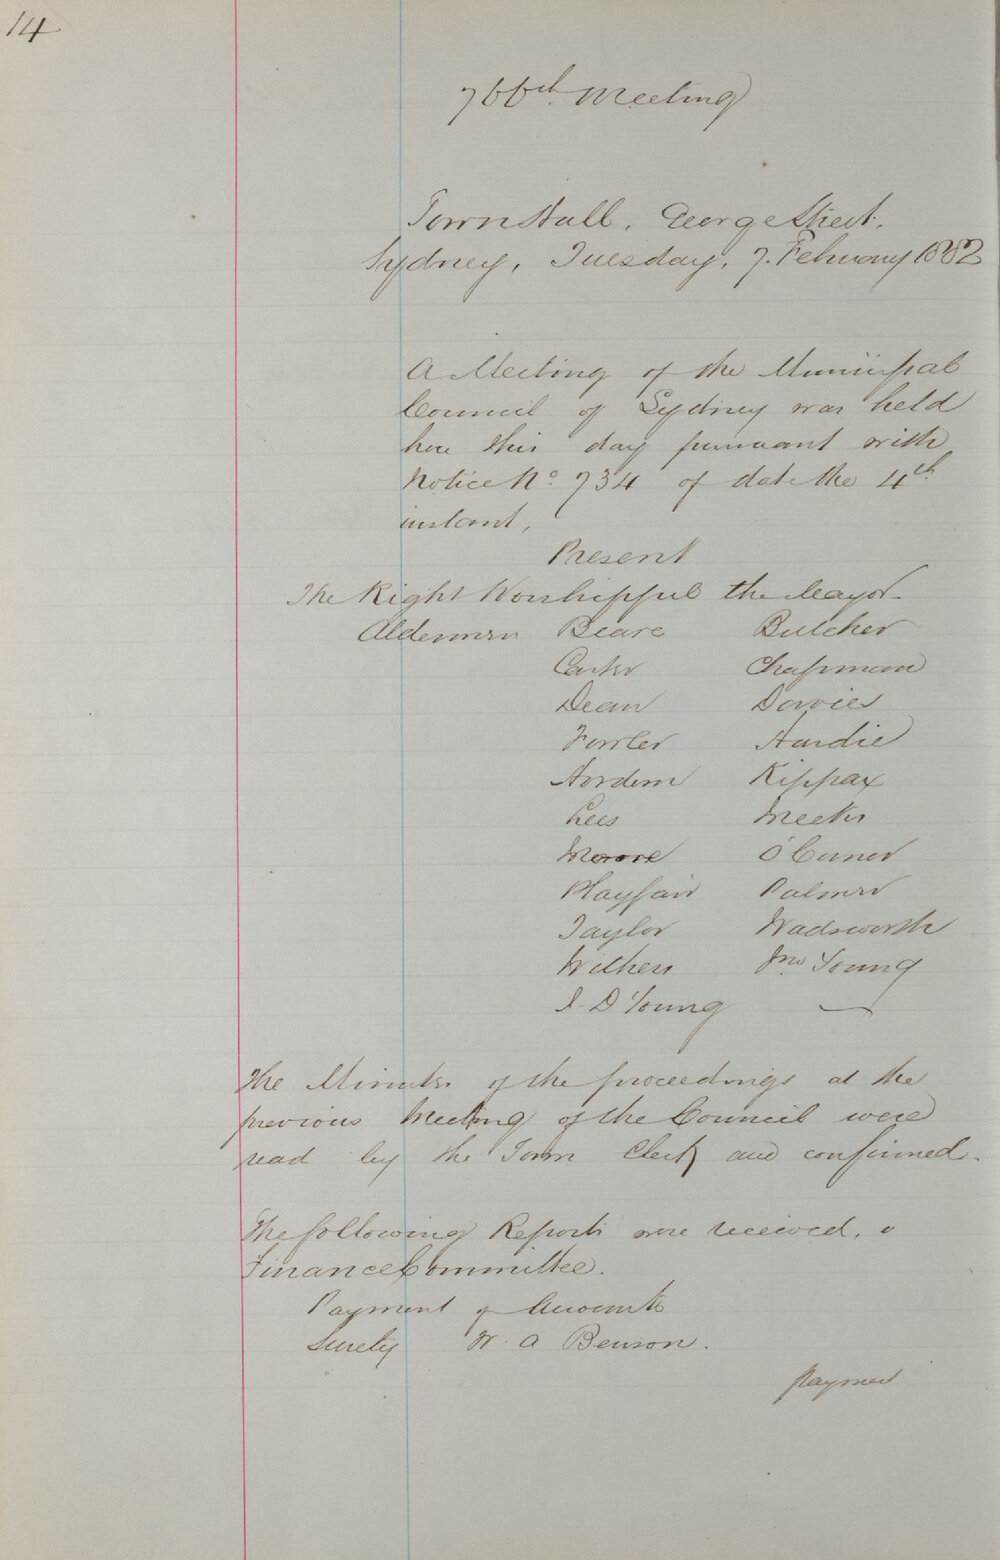 14
766th Meeting
Town Hall, George Street,
Sydney, Tuesday, 7. February 1882
A Meeting of the Municipal
Council of Sydney was held
here this day pursuant with
Notice No. 734 of date the 4th
instant,
Present
The Right Worshipful the Mayor
Aldermen Beare Butcher
Carter Chapman
Dean Davies
Fowler Hardie
Hordern Kippax
Lees Meeks
Moore O'Connor
Playfair Palmer
Taylor Wadsworth
Withers Jno Young
J. D Young —
The Minutes of the proceedings at the
previous Meeting of the Council were
read by the Town Clerk and confirmed.
The following Reports were received,
Finance Committee.
Payment of Accounts
Surety W. A Benson.
Paymen